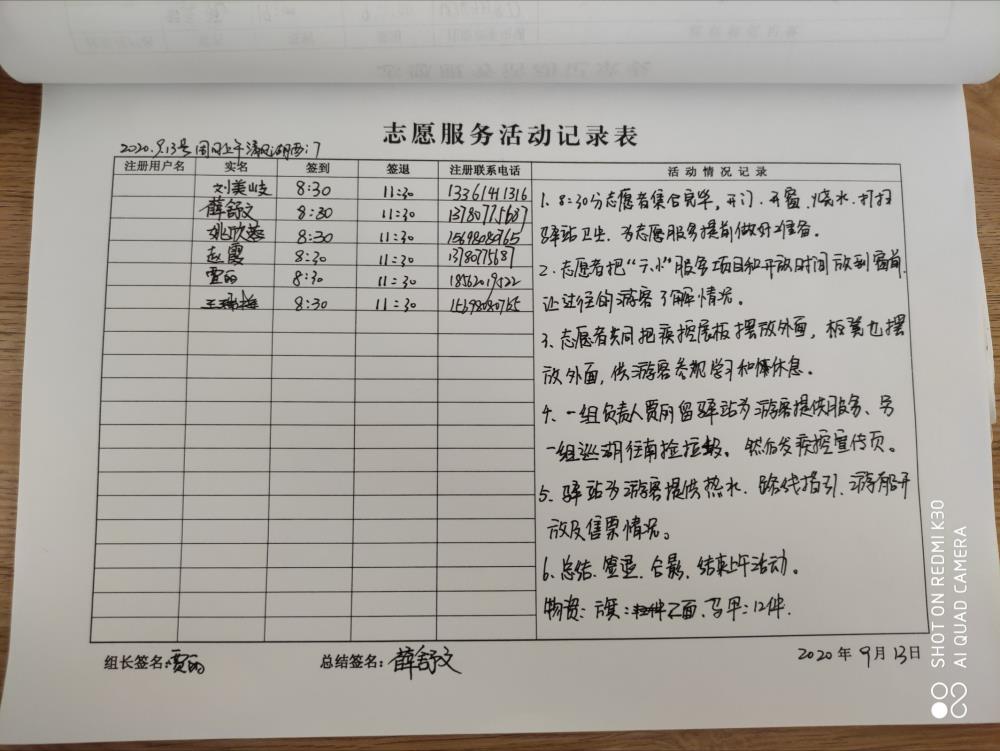 志愿服务活动记录表
2020.9.13号 周日上午清风湖西门
注册用户名 实名 签到 签退 注册联系电话 活动情况记录
刘美岐 8:30 11:30 13361441316
薛舒文 8:30 11:30 13780775687
姚欣蕊 8:30 11:30 15698080765
赵霞 8:30 11:30 13780775687
贾丽 8:30 11:30 18562019522
8:30 11:30 15698080765
1. 8:30分志愿者集合完毕,开门、开窗、烧水、打扫
驿站卫生,为志愿服务提前做好准备。
2. 志愿者把“六小”服务项目和开放时间放到窗前,
让过往的游客了解情况。
3. 志愿者共同把疾控展板摆放外面,板凳也摆
放外面,供游客参观学习和休息。
4. 一组负责人贾丽留驿站为游客提供服务、另
一组巡湖往南捡垃圾。然后发疾控宣传页。
5. 驿站为游客提供热水、路线指引、游船开
放及售票情况。
6. 总结、签退、合影、结束上午活动。
物资:旗:2面,马甲:12件.
组长签名:贾丽 总结签名:薛舒文 2020年9月13日
SHOT ON REDMI K30
AI QUAD CAMERA